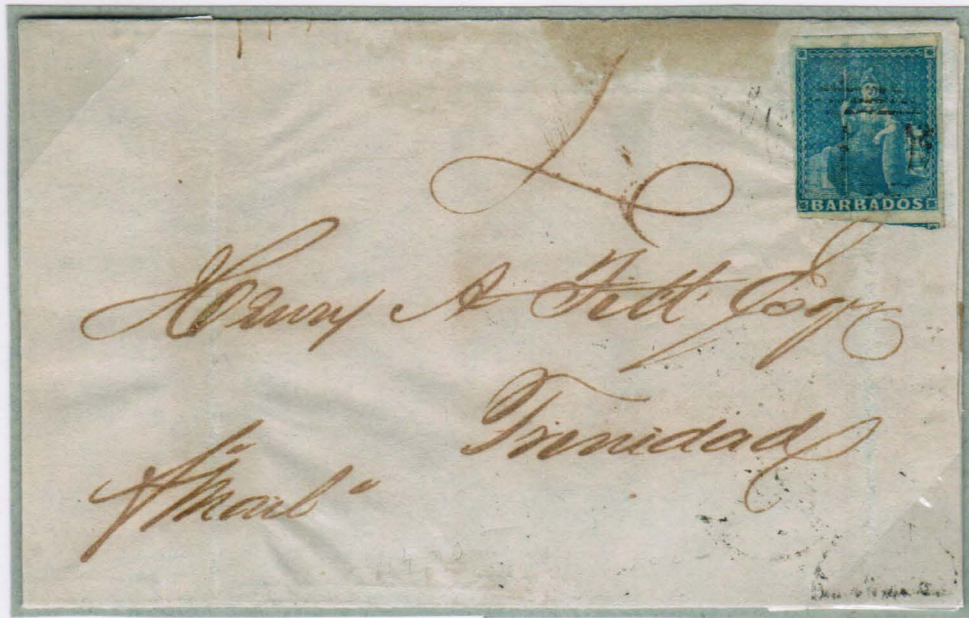 BARBADOS
Henry A Fitt Esqr
Trinidad
"Mail"